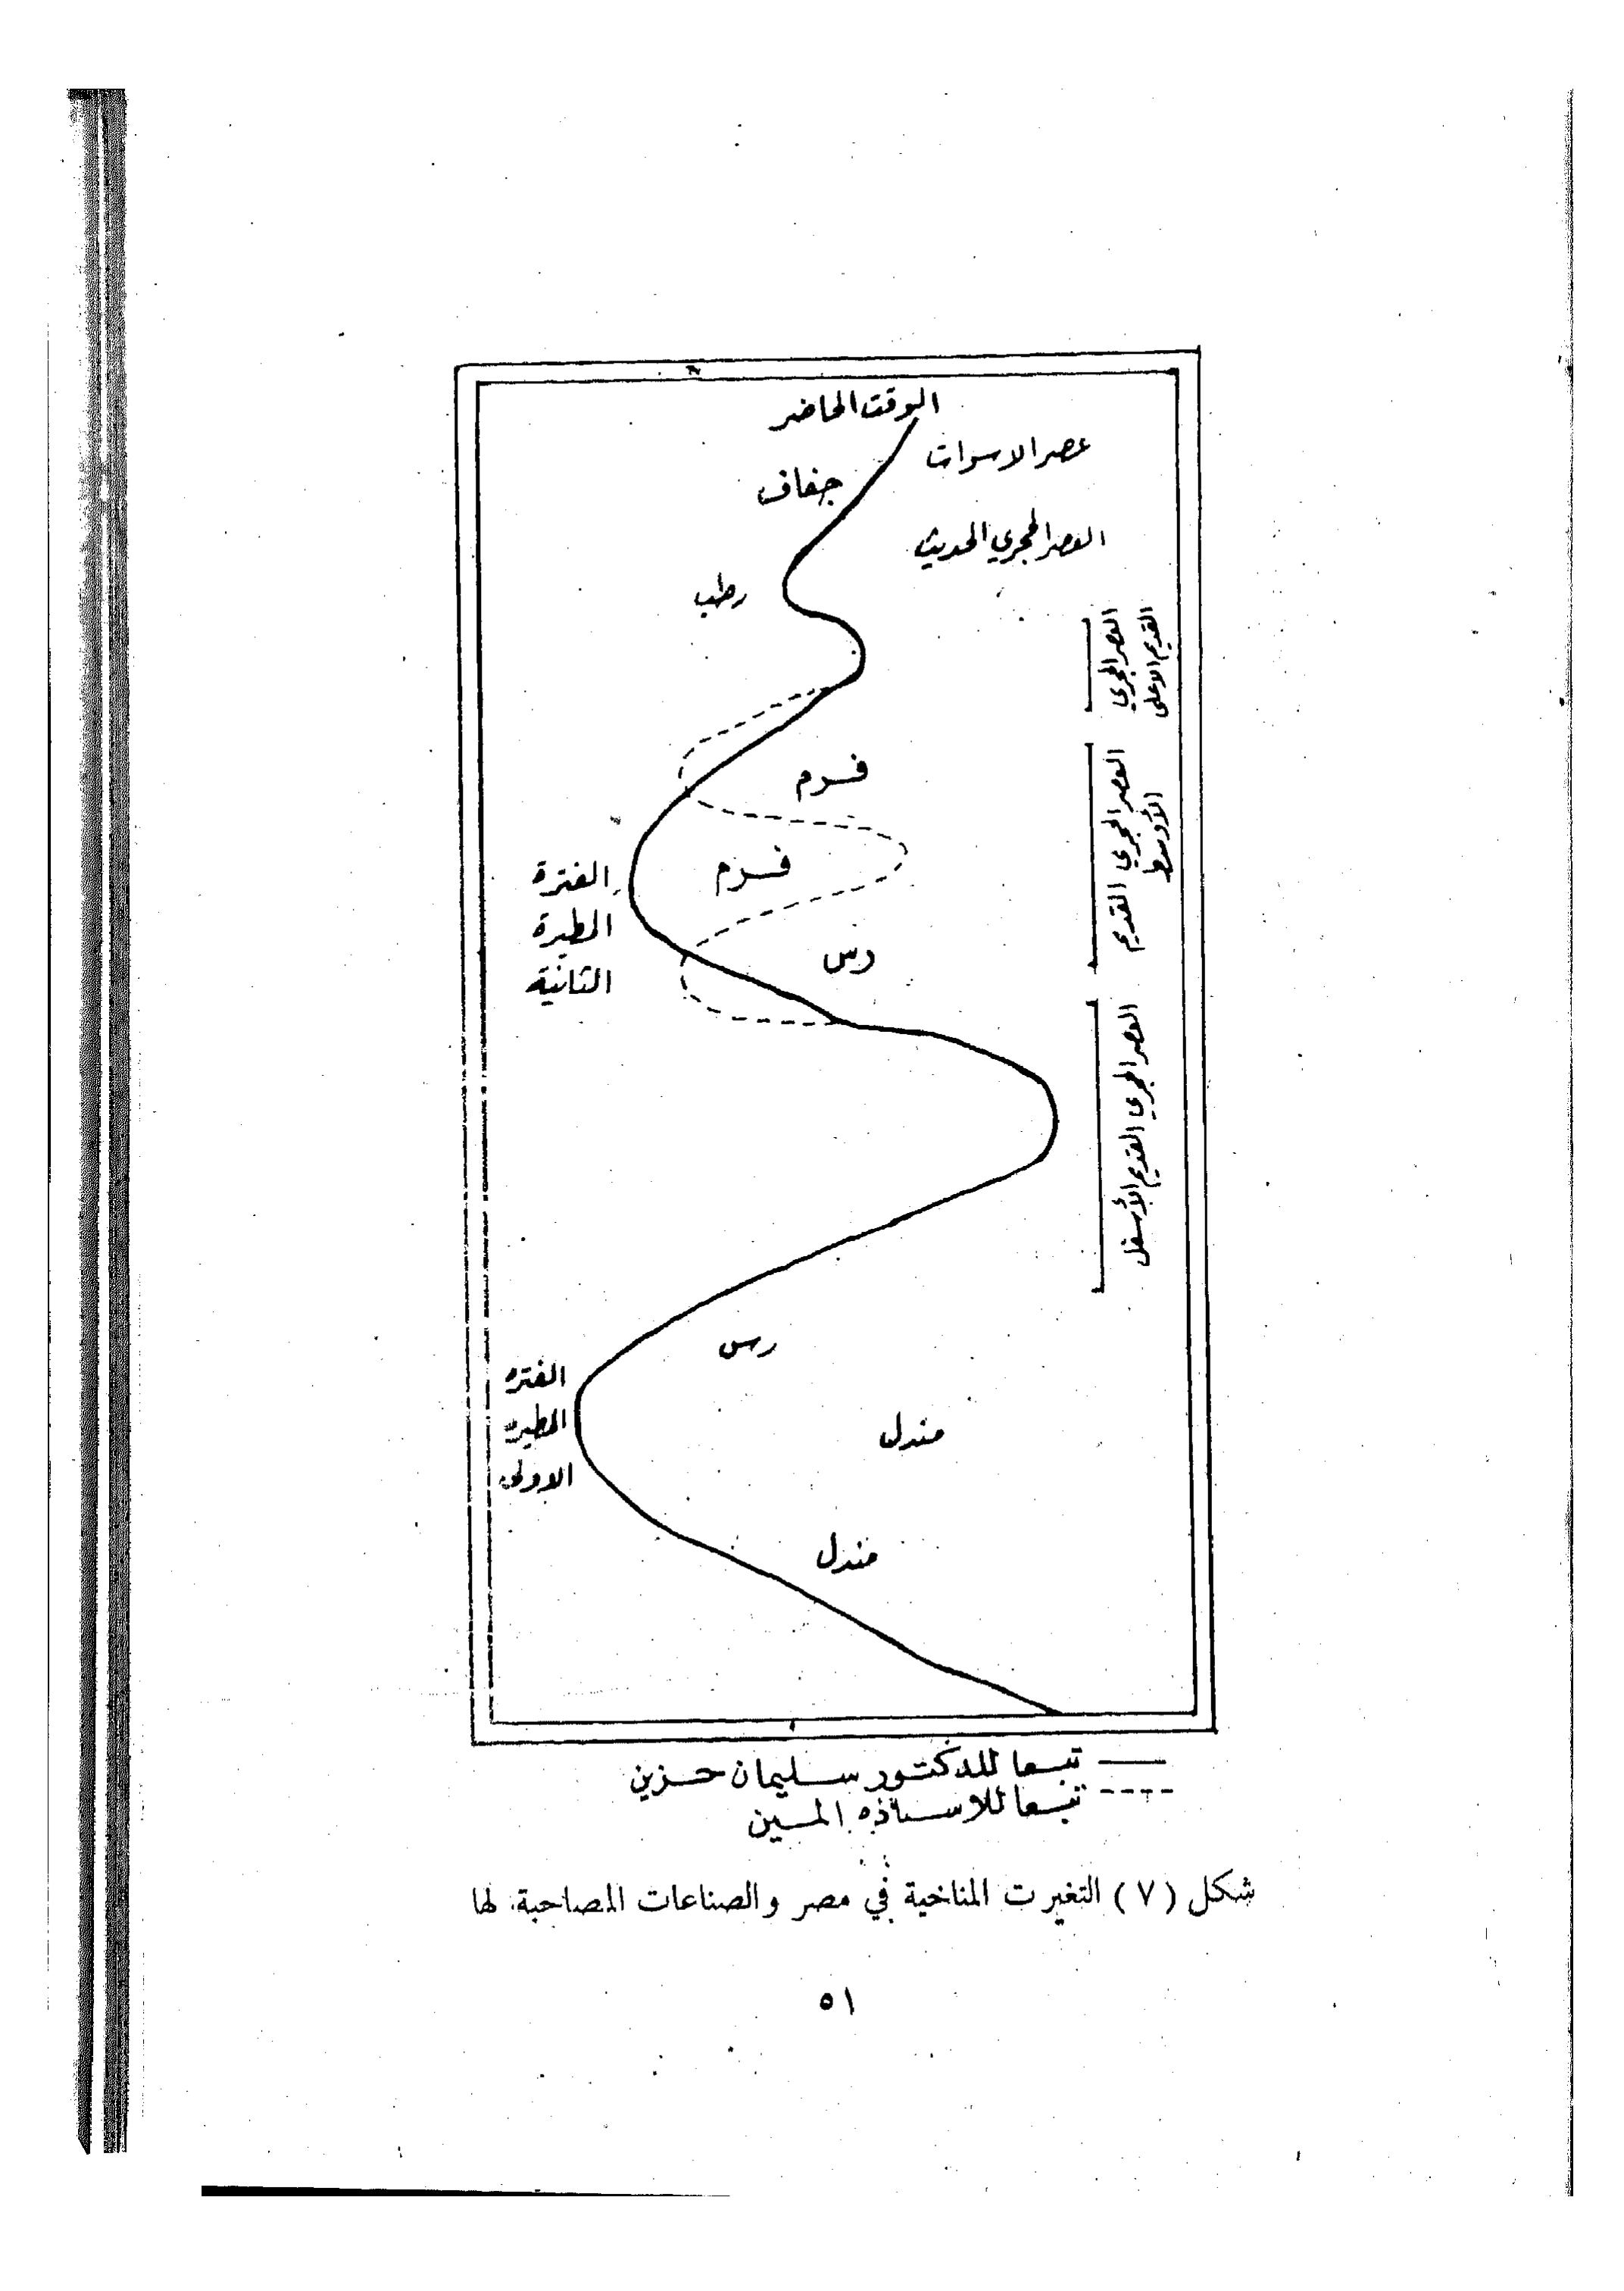 الوقت الحاضر
عصر الاسرات
جفاف
العصر الحجري الحديث
رطب
العصر الحجري
القديم الاعلى
فرم
العصر الحجري القديم
الأوسط
فرم
الفترة
المطيرة
الثانية
رس
العصر الحجري القديم الأسفل
رس
الفتره
المطيره
الاولى
مندل
مندل
تبعا للدكتور سليمان حزين
تبعا للاساتذه
شكل (٧) التغيرت المناخية في مصر والصناعات المصاحبة لها
٥١